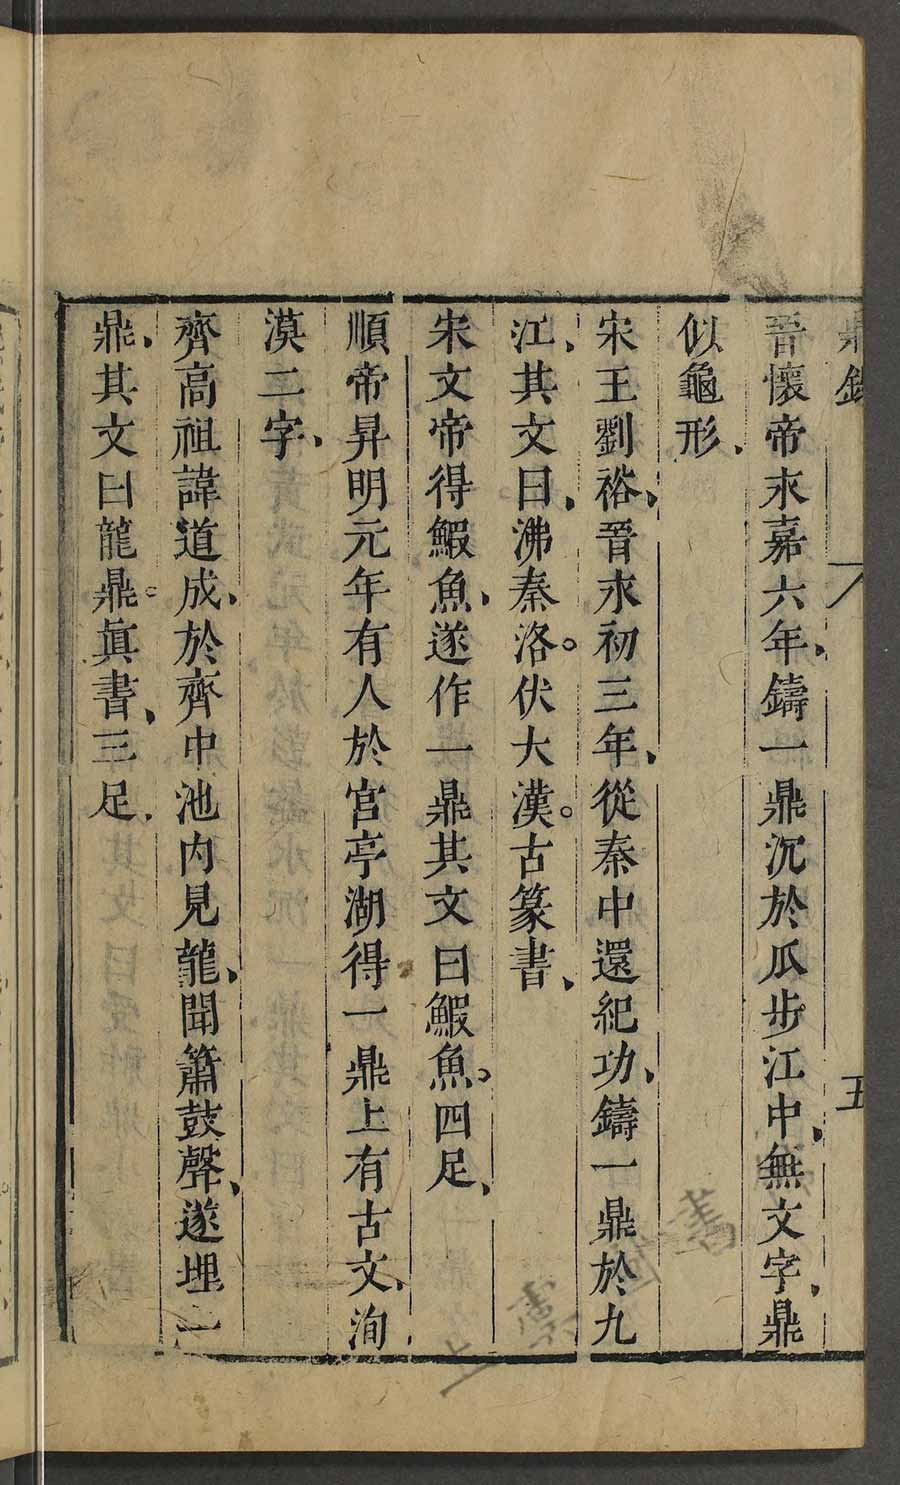 鼎錄
五
晉懷帝永嘉六年、鑄一鼎沉於瓜步江中、無文字、鼎
似龜形、
宋王劉裕、晉永初三年、從秦中還紀功、鑄一鼎於九
江、其文曰、沸秦洛。伏大漢。古篆書、
宋文帝得鰕魚、遂作一鼎其文曰鰕魚。四足、
順帝昇明元年有人於宮亭湖得一鼎上有古文、洵
漠二字、
齊高祖諱道成、於齊中池內見龍、聞簫鼓聲、遂埋一
鼎、其文曰龍鼎。眞書、三足、